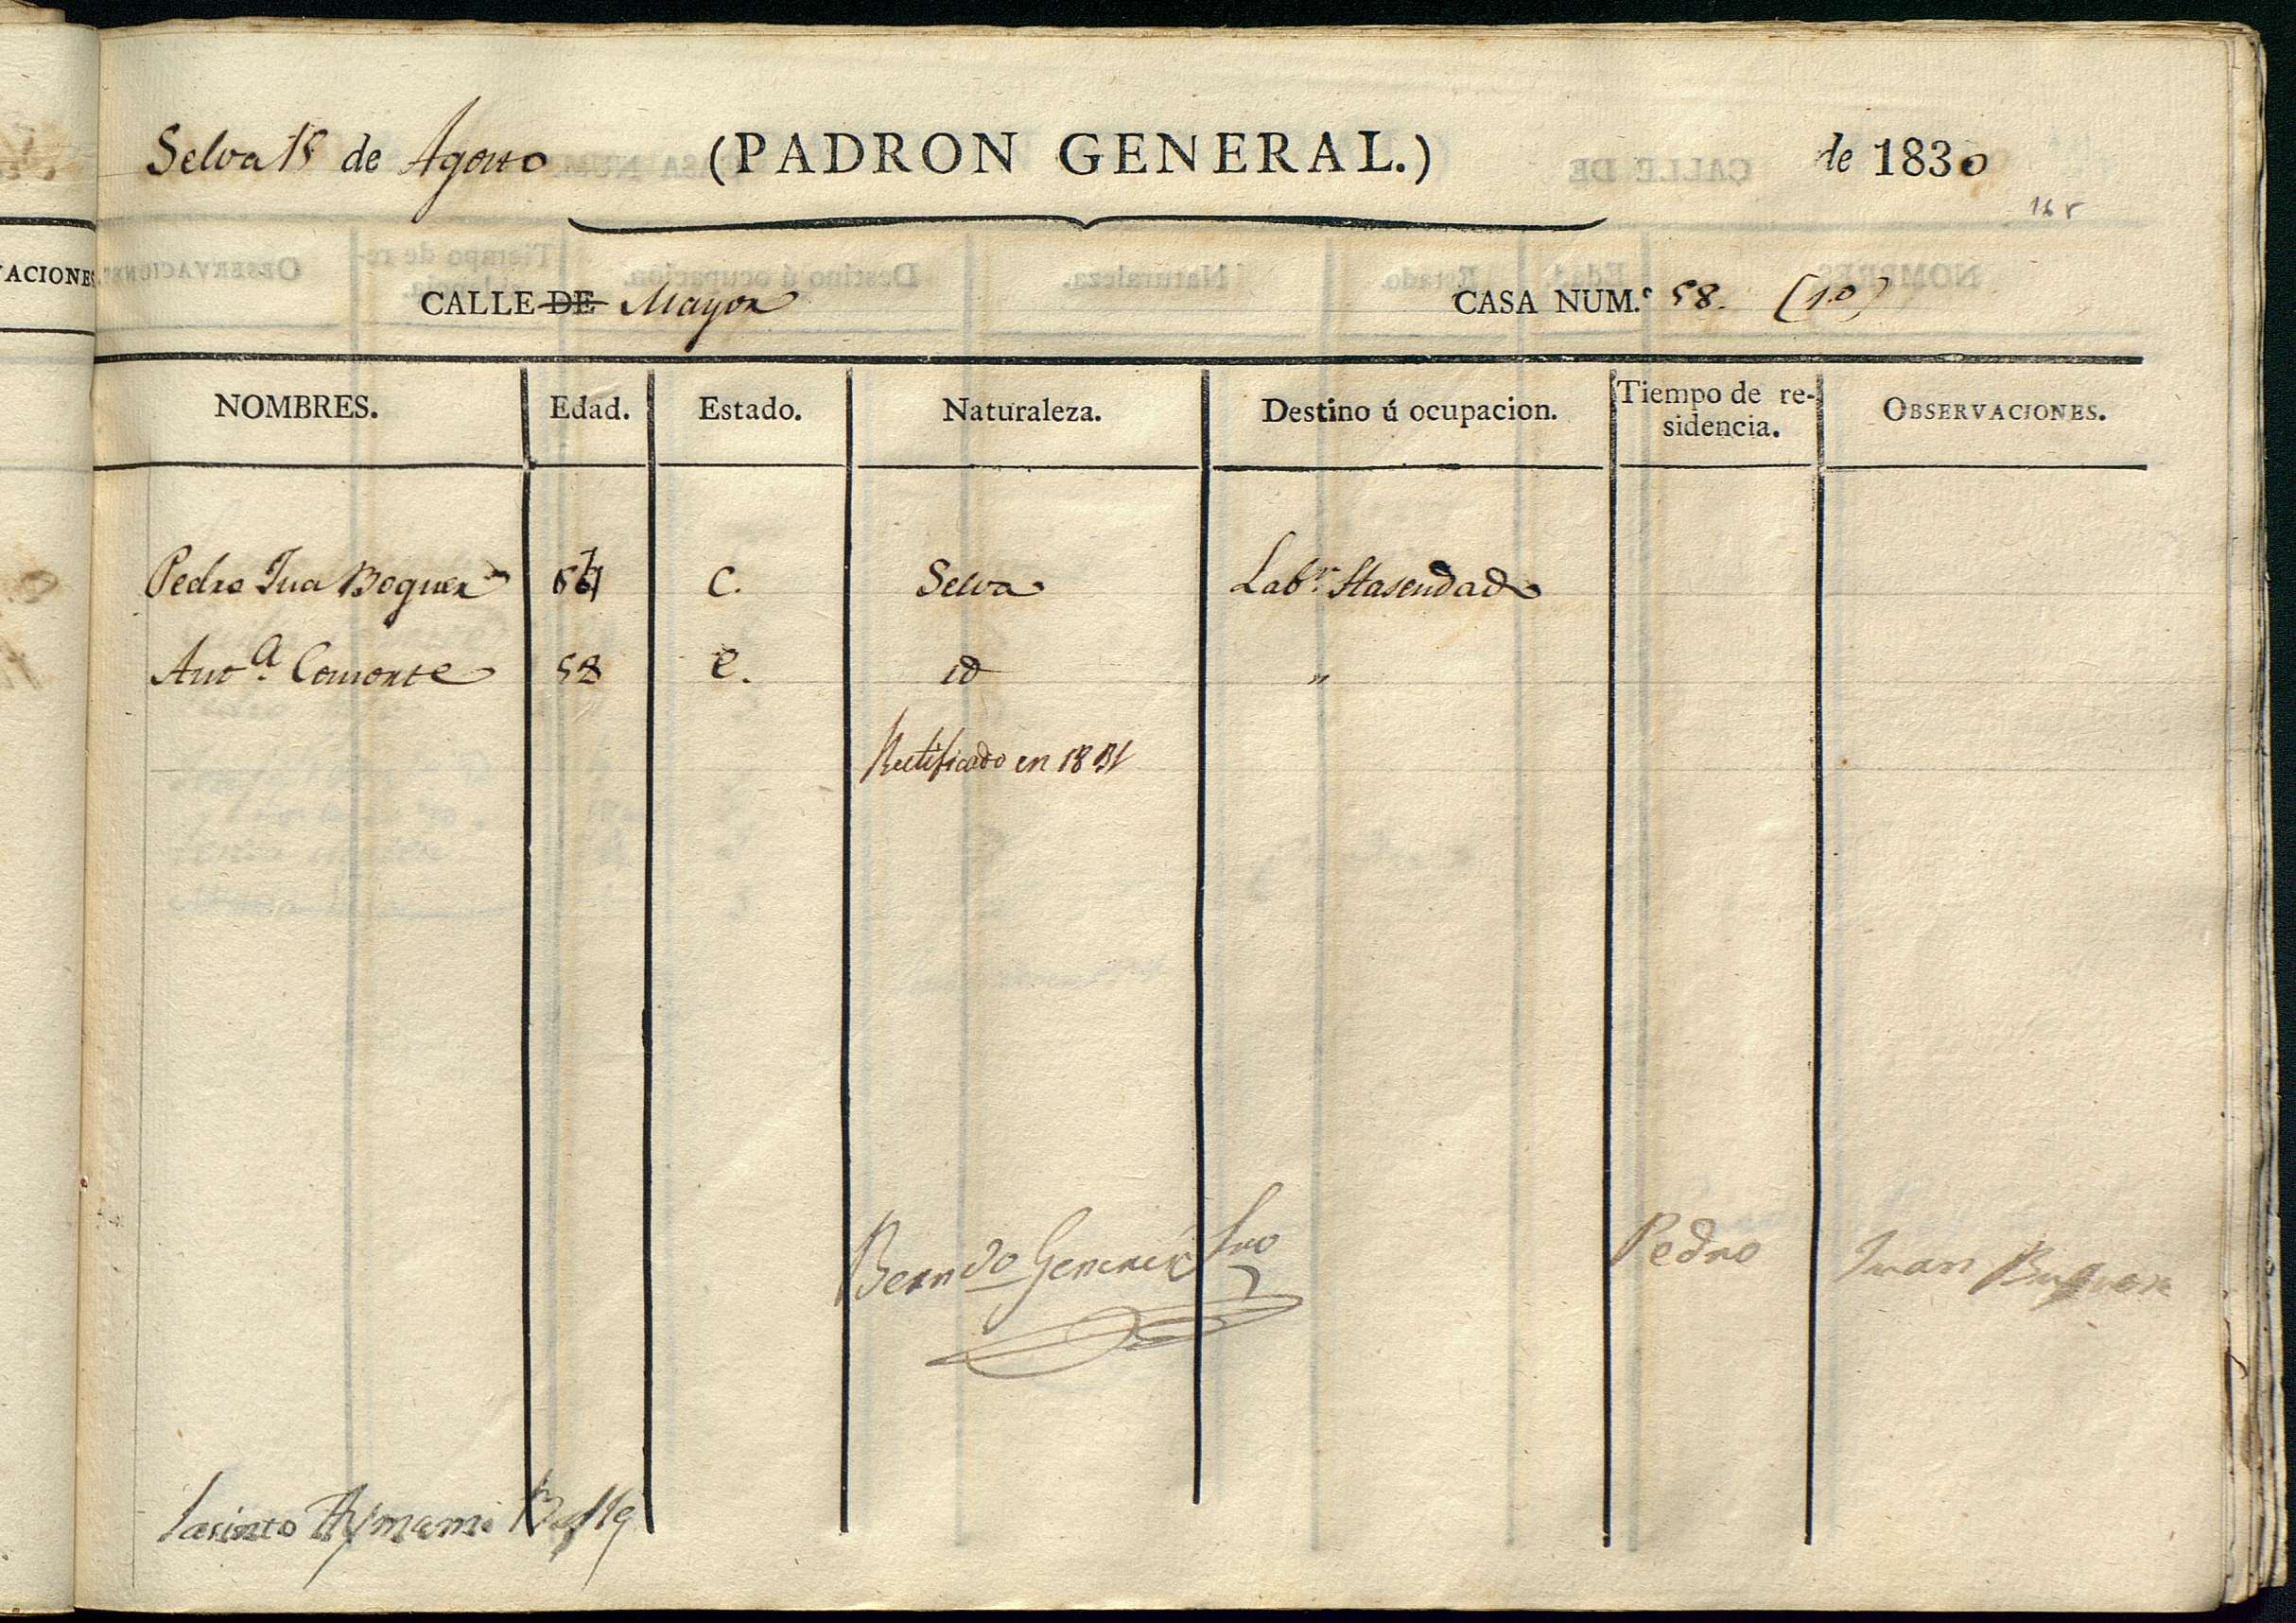 Selva 18 de Agosto (PADRON GENERAL.) de 1830
165
CALLE DE Mayor CASA NUM.º 58. (10)
VACIONES
NOMBRES. Edad. Estado. Naturaleza. Destino ú ocupacion. Tiempo de re-
sidencia. OBSERVACIONES.
Pedro Jua Boguer C. Selva Lab.r Hasendado
Ant.a 58 C. id "
Rectificado en 1831
Bern.do Generés Sno
Pedro Juan Buguer
Jasinto Aymami Batlle